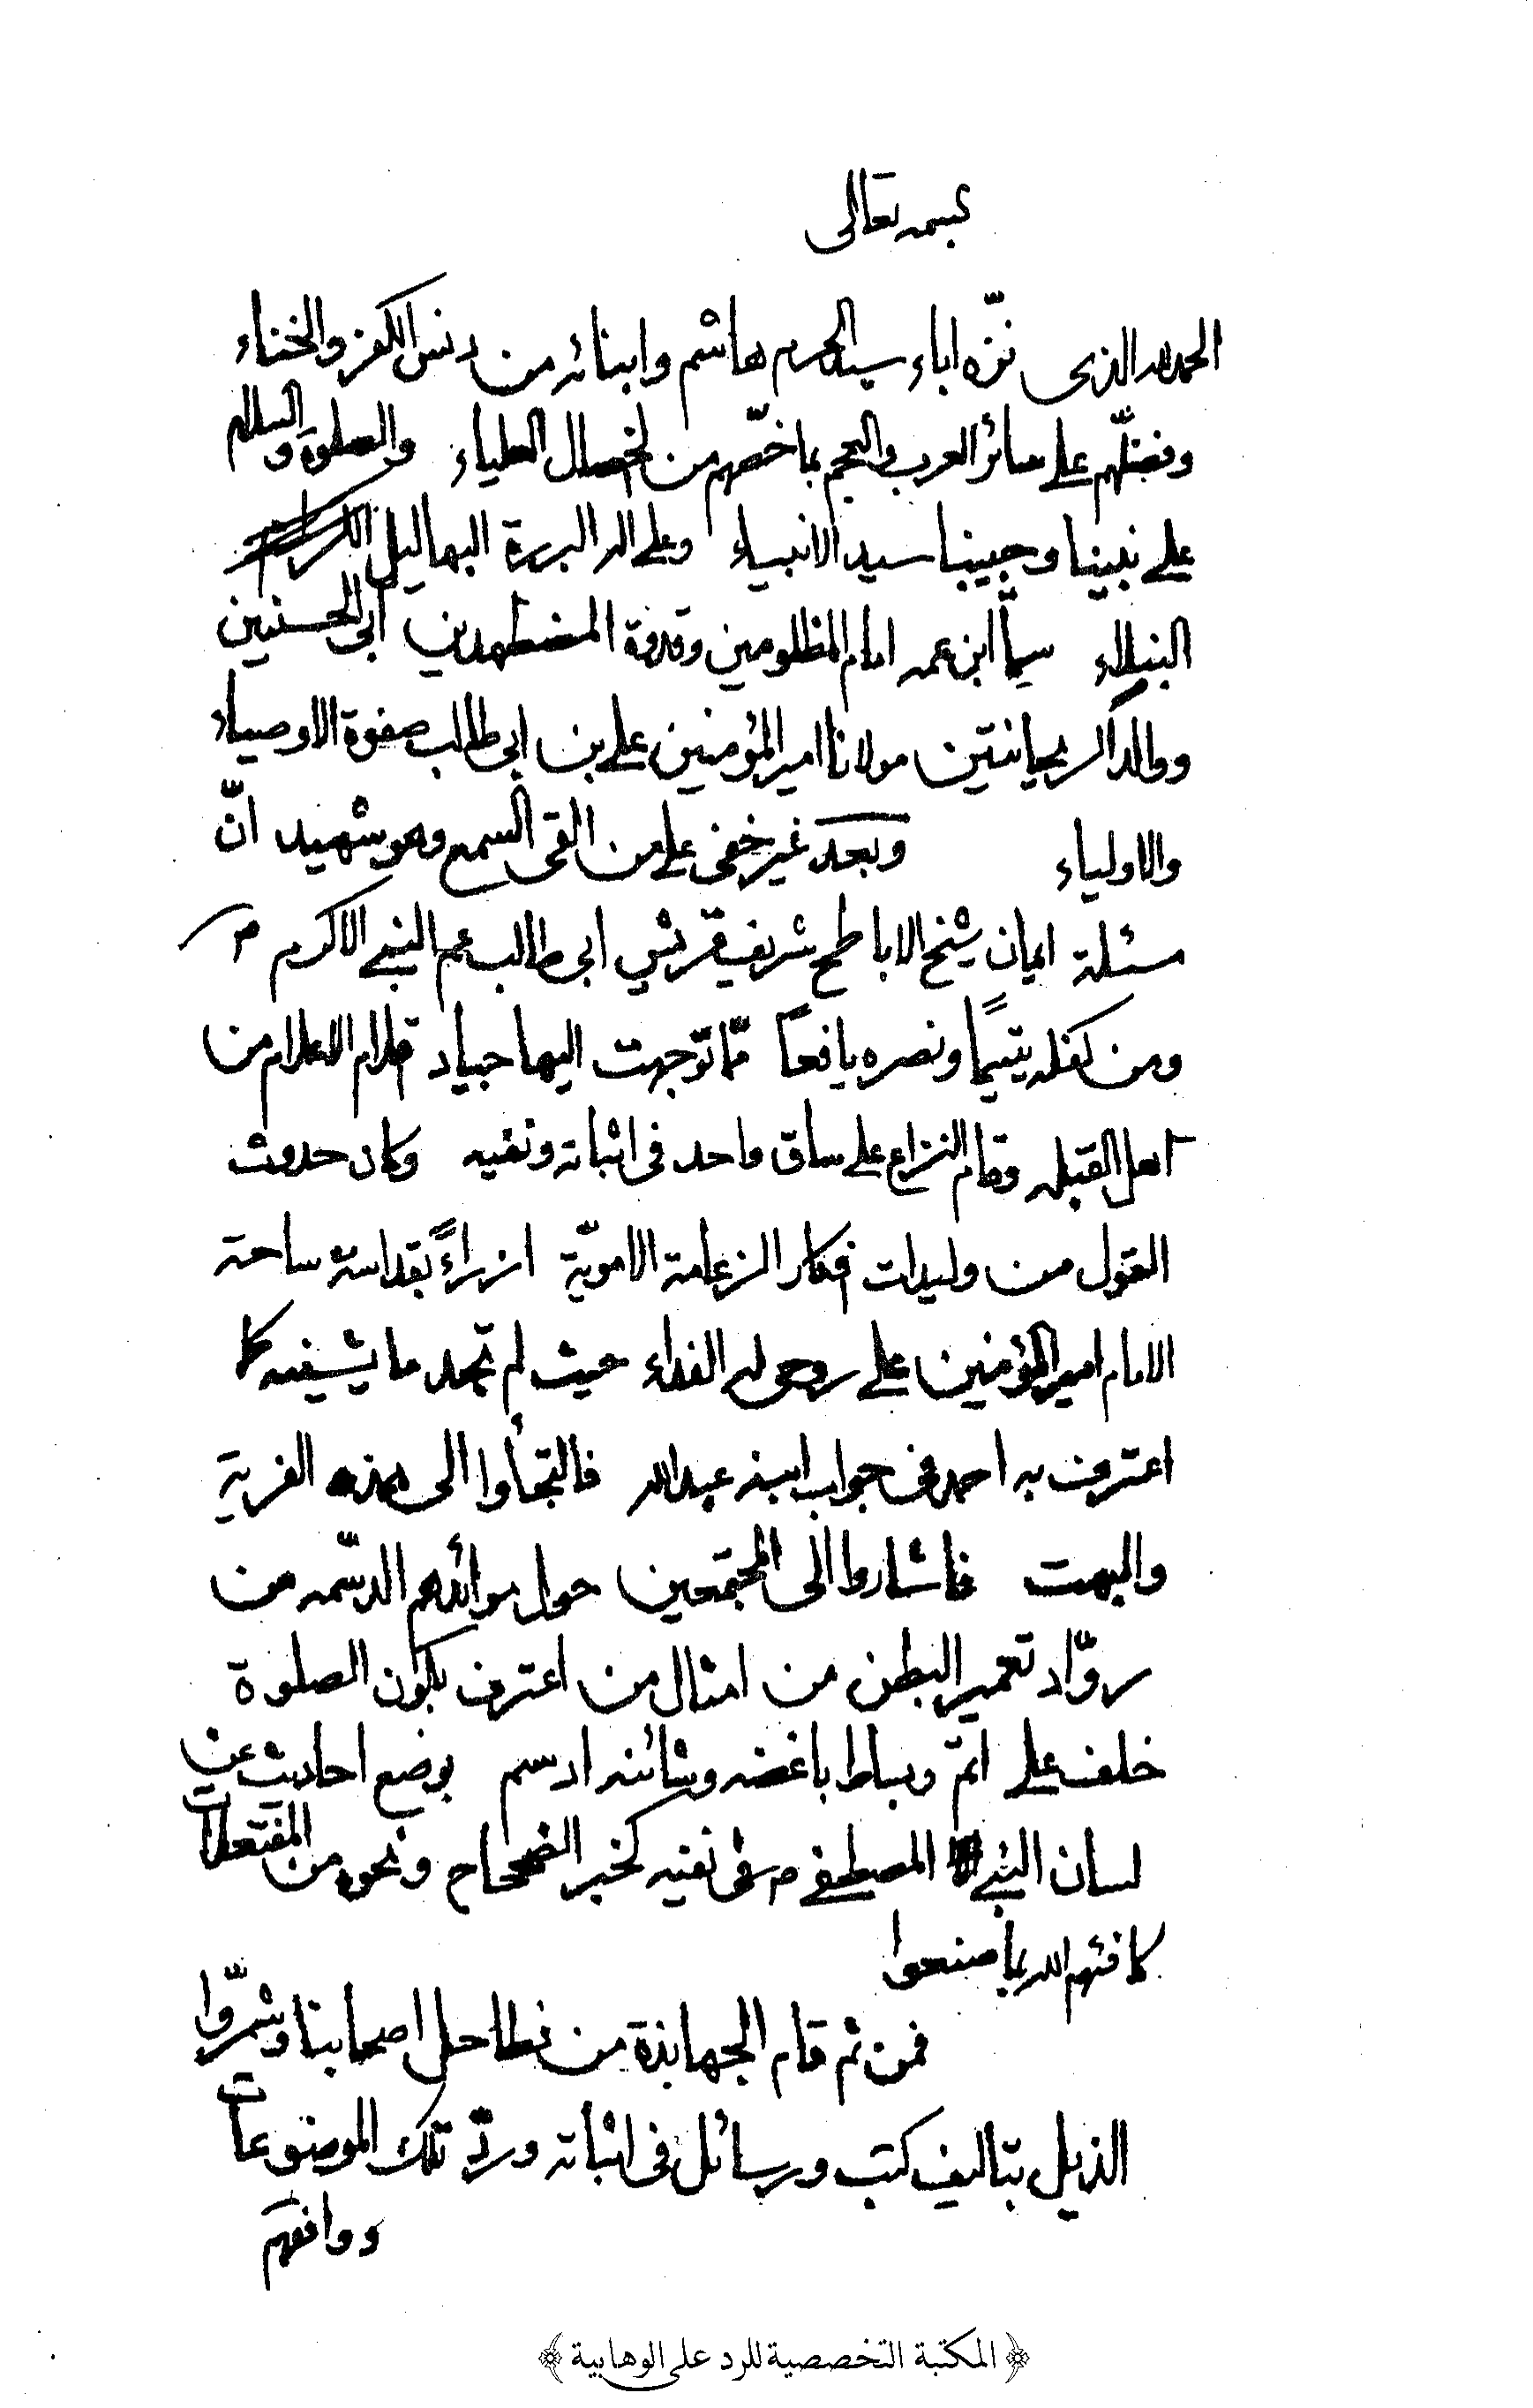 بسمه تعالى
الحمد لله الذى نزّه اباء سيد الحرم هاشم وابنائه من دنس الكفر والخناء
وفضّلهم على سائر العرب والعجم بما خصّهم من الخصال العلياء والصلوة والسلام
على نبينا وحبيبنا سيد الانبياء وعلى اله البررة البهاليل الكرام
النبلاء سيّما ابن عمه امام المظلومين وقدوة المضطهدين ابى الحسنين
ووالد الريحانتين مولانا امير المؤمنين على بن ابى طالب صفوة الاوصياء
والاولياء وبعد غير خفى على من القى السمع وهو شهيد انّ
مسئلة ايمان شيخ الاباطح شريف قريش ابى طالب عم النبى الاكرم ص
ومن كفله يتيمًا ونصره يافعًا ممّا توّجهت اليها جياد اقلام الاعلام من
اهل القبله وقام النزاع على ساق واحد فى اثباته ونفيه وكان حدوث
القول من وليدات افكار الزعامة الامويّة ازراءً بقداسة ساحة
الامام امير المؤمنين على روحى له الفداء حيث لم تجد ما يشينه كما
اعترف به احمد فى جواب ابنه عبدالله فالتجأوا الى هذه الفرية
والبهت فاشاروا الى المجتمعين حول موائدهم الدسّمه من
روّاد تعمير البطن من امثال من اعترف بكون الصلوة
خلف على اتمّ وبساط باغضه وشائنه ادسم بوضع احاديث عن
لسان النبى المصطفى ص فى نفيه كخبر الضحضاح ونحوه من المفتعلات
كافئهم الله بما صنعوا
فمن ثم قام الجهابذة من فطاحل اصحابنا وشمّروا
الذيل بتاليف كتب ورسائل فى اثباته وردّ تلك الموضوعات
ووافقهم
﴿المكتبة التخصصية للرد على الوهابية﴾